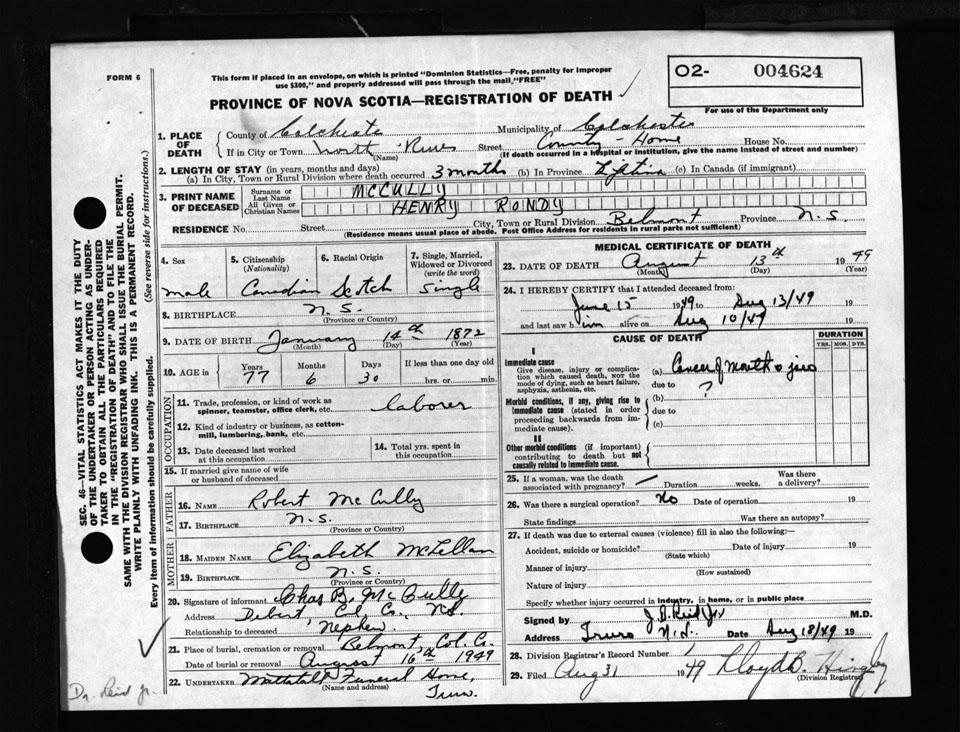 FORM 6
This form if placed in an envelope, on which is printed "Dominion Statistics—Free, penalty for improper
use $300," and properly addressed will pass through the mail, "FREE"
O2- 004624
For use of the Department only
PROVINCE OF NOVA SCOTIA—REGISTRATION OF DEATH
SEC. 46—VITAL STATISTICS ACT MAKES IT THE DUTY
OF THE UNDERTAKER OR PERSON ACTING AS UNDER-
TAKER TO OBTAIN ALL THE PARTICULARS REQUIRED
IN THE "REGISTRATION OF DEATH" AND TO FILE THE
SAME WITH THE DIVISION REGISTRAR WHO SHALL ISSUE THE BURIAL PERMIT.
WRITE PLAINLY WITH UNFADING INK. THIS IS A PERMANENT RECORD.
(See reverse side for instructions.)
Every item of information should be carefully supplied.
1. PLACE OF DEATH
County of Colchester Municipality of Colchester
If in City or Town North River Street County Home House No.
(Name) (If death occurred in a hospital or institution, give the name instead of street and number)
2. LENGTH OF STAY (in years, months and days)
(a) In City, Town or Rural Division where death occurred 3 months (b) In Province Lifetime (c) In Canada (if immigrant)
3. PRINT NAME OF DECEASED
Surname or Last Name MCCULLY
All Given or Christian Names HENRY RONDY
RESIDENCE No. Street City, Town or Rural Division Belmont Province N.S.
(Residence means usual place of abode. Post Office Address for residents in rural parts not sufficient)
4. Sex
male
5. Citizenship
(Nationality)
Canadian
6. Racial Origin
Scotch
7. Single, Married,
Widowed or Divorced
(write the word)
Single
8. BIRTHPLACE N.S.
(Province or Country)
9. DATE OF BIRTH January 14th 1872
(Month) (Day) (Year)
10. AGE in Years Months Days If less than one day old
77 6 30 hrs. or min.
OCCUPATION
11. Trade, profession, or kind of work as
spinner, teamster, office clerk, etc. laborer
12. Kind of industry or business, as cotton-
mill, lumbering, bank, etc.
13. Date deceased last worked
at this occupation
14. Total yrs. spent in
this occupation
15. If married give name of wife
or husband of deceased
FATHER
16. NAME Robert McCully
17. BIRTHPLACE N.S.
(Province or Country)
MOTHER
18. MAIDEN NAME Elizabeth McLellan
19. BIRTHPLACE N.S.
(Province or Country)
20. Signature of informant Chas B. McCully
Address Debert, Col. Co. N.S.
Relationship to deceased Nephew.
21. Place of burial, cremation or removal Belmont, Col. Co.
Date of burial or removal August 16th 1949
22. UNDERTAKER Mattatall Funeral Home,
(Name and address) Truro.
Dr. Reid Jr.
MEDICAL CERTIFICATE OF DEATH
23. DATE OF DEATH August 13th 1949
(Month) (Day) (Year)
24. I HEREBY CERTIFY that I attended deceased from:
June 15 1949 to Aug 13/49 19
and last saw him alive on Aug 10/49 19
CAUSE OF DEATH
DURATION
YRS. MOS. DYS.
I
Immediate cause
Give disease, injury or complica-
tion which caused death, NOT the
mode of dying, such as heart failure,
asphyxia, asthenia, etc.
(a) Cancer of Mouth & jaw
due to ?
Morbid conditions, if any, giving rise to
immediate cause (stated in order
proceeding backwards from im-
mediate cause).
(b)
due to
(c)
II
Other morbid conditions (if important)
contributing to death but not
causally related to immediate cause.
25. If a woman, was the death
associated with pregnancy? — Duration weeks. Was there
a delivery?
26. Was there a surgical operation? No Date of operation 19
State findings Was there an autopsy?
27. If death was due to external causes (violence) fill in also the following:—
Accident, suicide or homicide? Date of injury 19
(State which)
Manner of injury
(How sustained)
Nature of injury
Specify whether injury occurred in industry, in home, or in public place
Signed by J.D. Reid Jr. M.D.
Address Truro N.S. Date Aug 18/49 19
28. Division Registrar's Record Number
29. Filed Aug 31 1949 Lloyd B. Hingley
(Division Registrar)